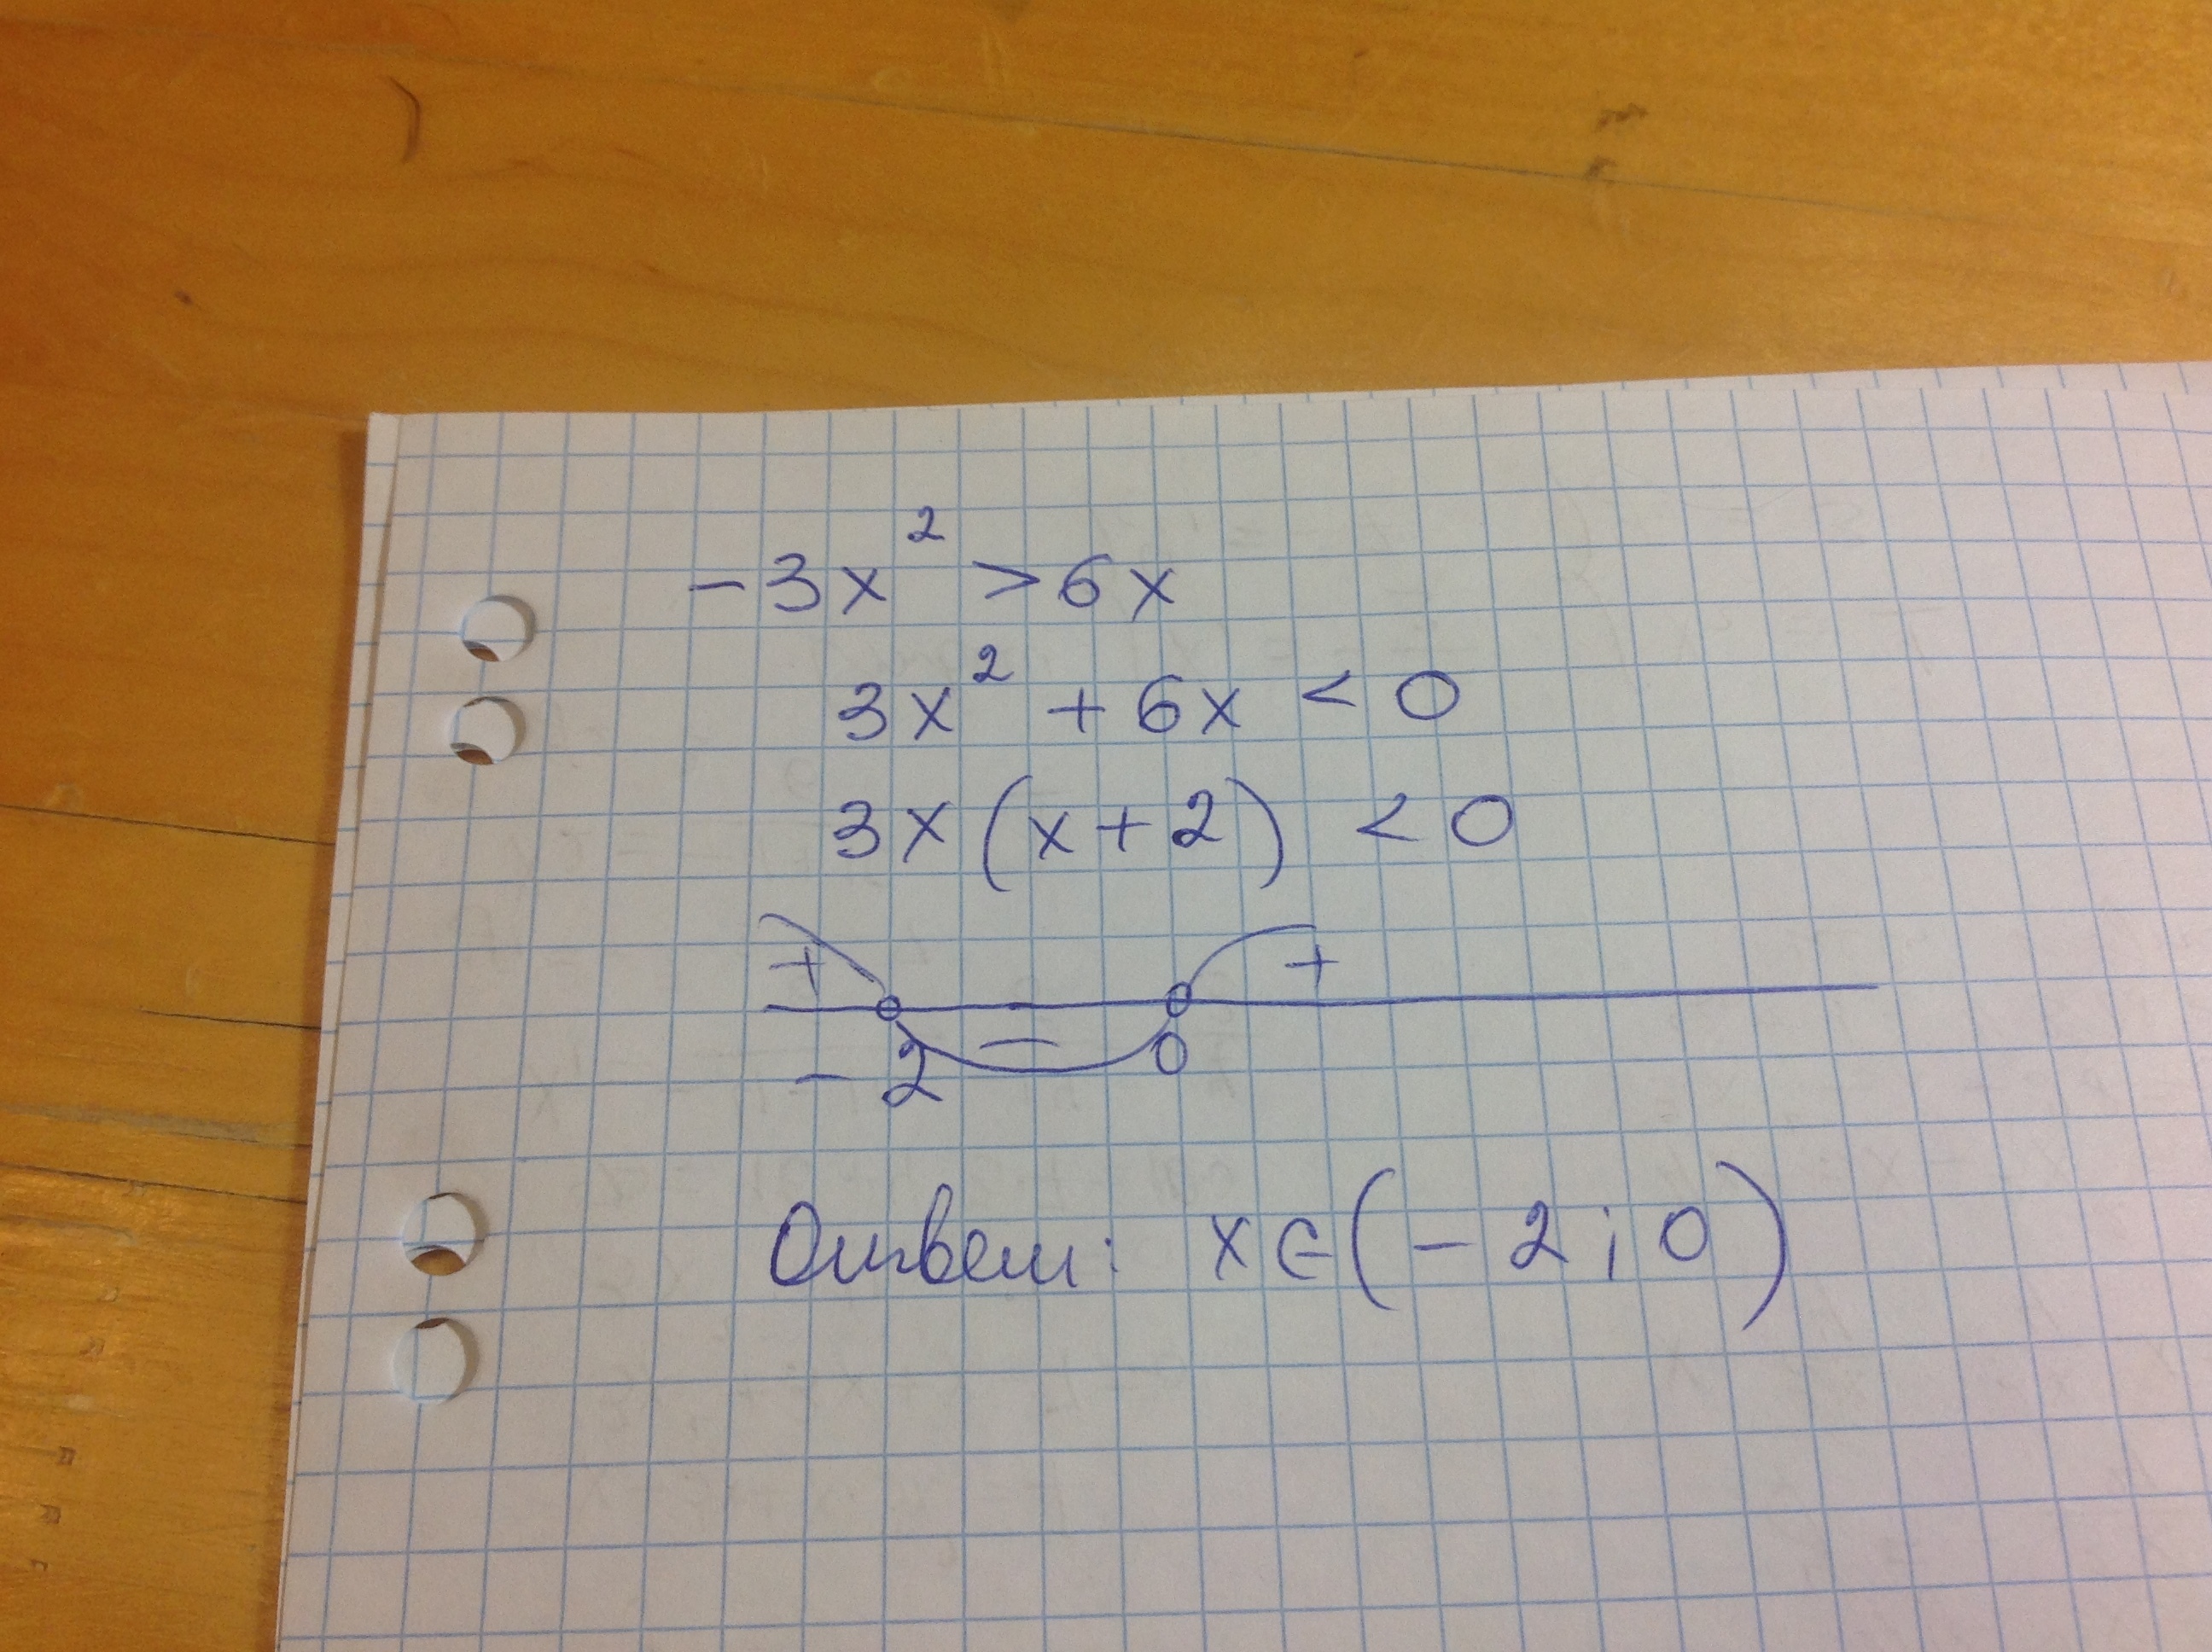 -3x² > 6x
3x² + 6x < 0
3x(x+2) < 0
+ − +
-2 0
Ответ: x∈(-2; 0)